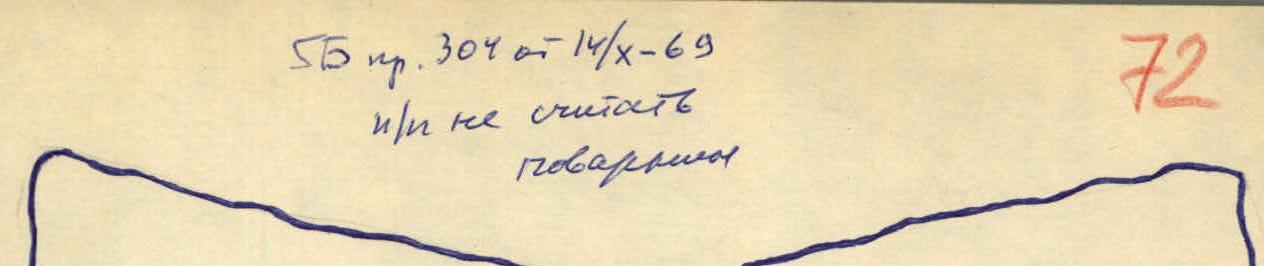 5Б пр. 304 от 14/X-69
72
п/п не считать